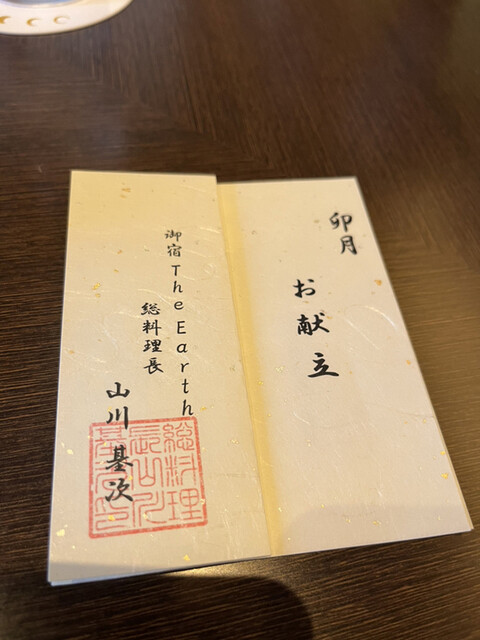 卯月
お献立
御宿 The Earth
総料理長
山川 基次
総料理
長山川
基次之印